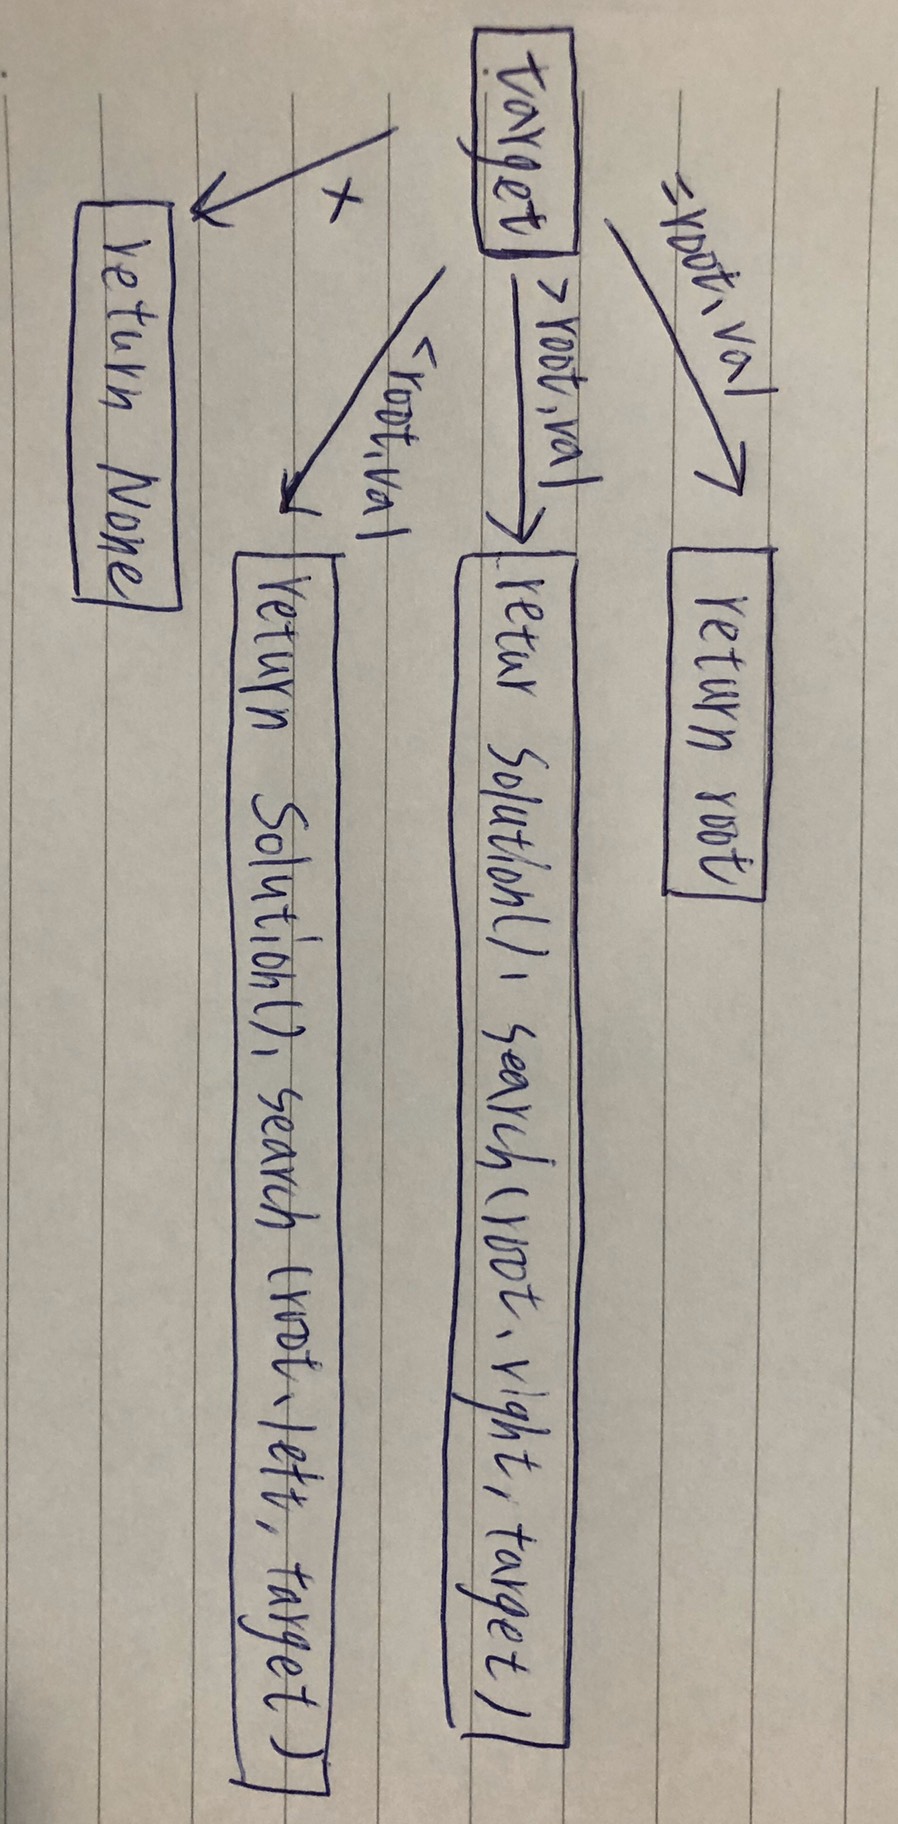 =root.val
return root
target
>root.val
retur Solution().search(root.right, target)
<root.val
return Solution().search(root.left, target)
x
return None